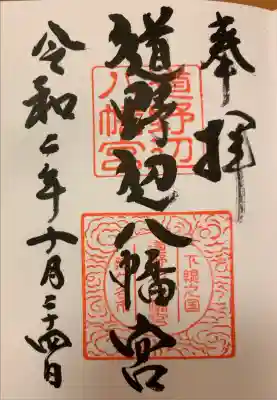 奉拝
道野辺八幡宮
令和二年十月二十四日
道野辺
八幡宮
下総之国